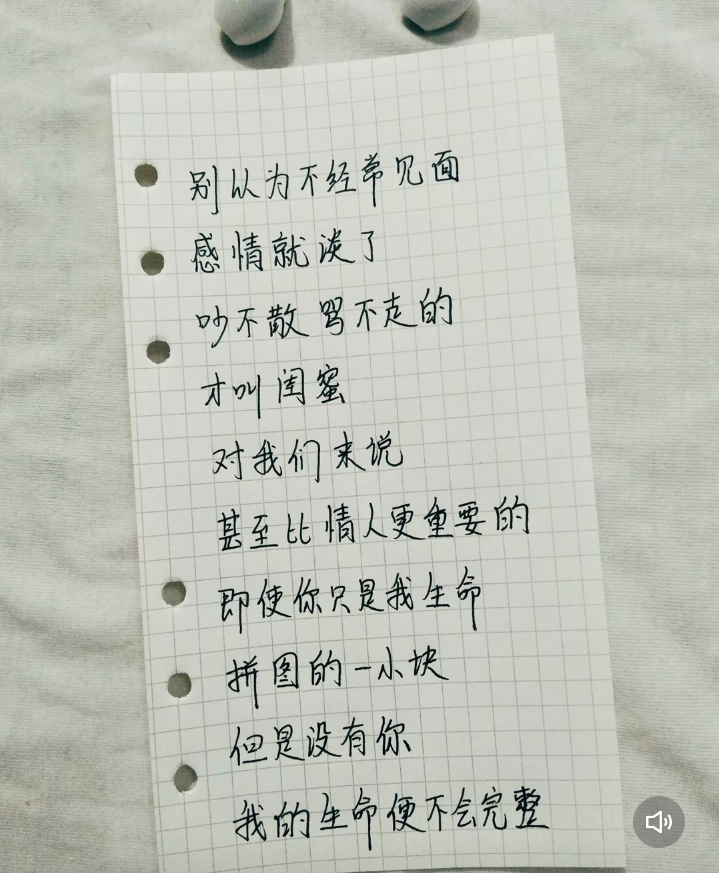 别以为不经常见面
感情就淡了
吵不散 骂不走的
才叫闺蜜
对我们来说
甚至比情人更重要的
即使你只是我生命
拼图的一小块
但是没有你
我的生命便不会完整